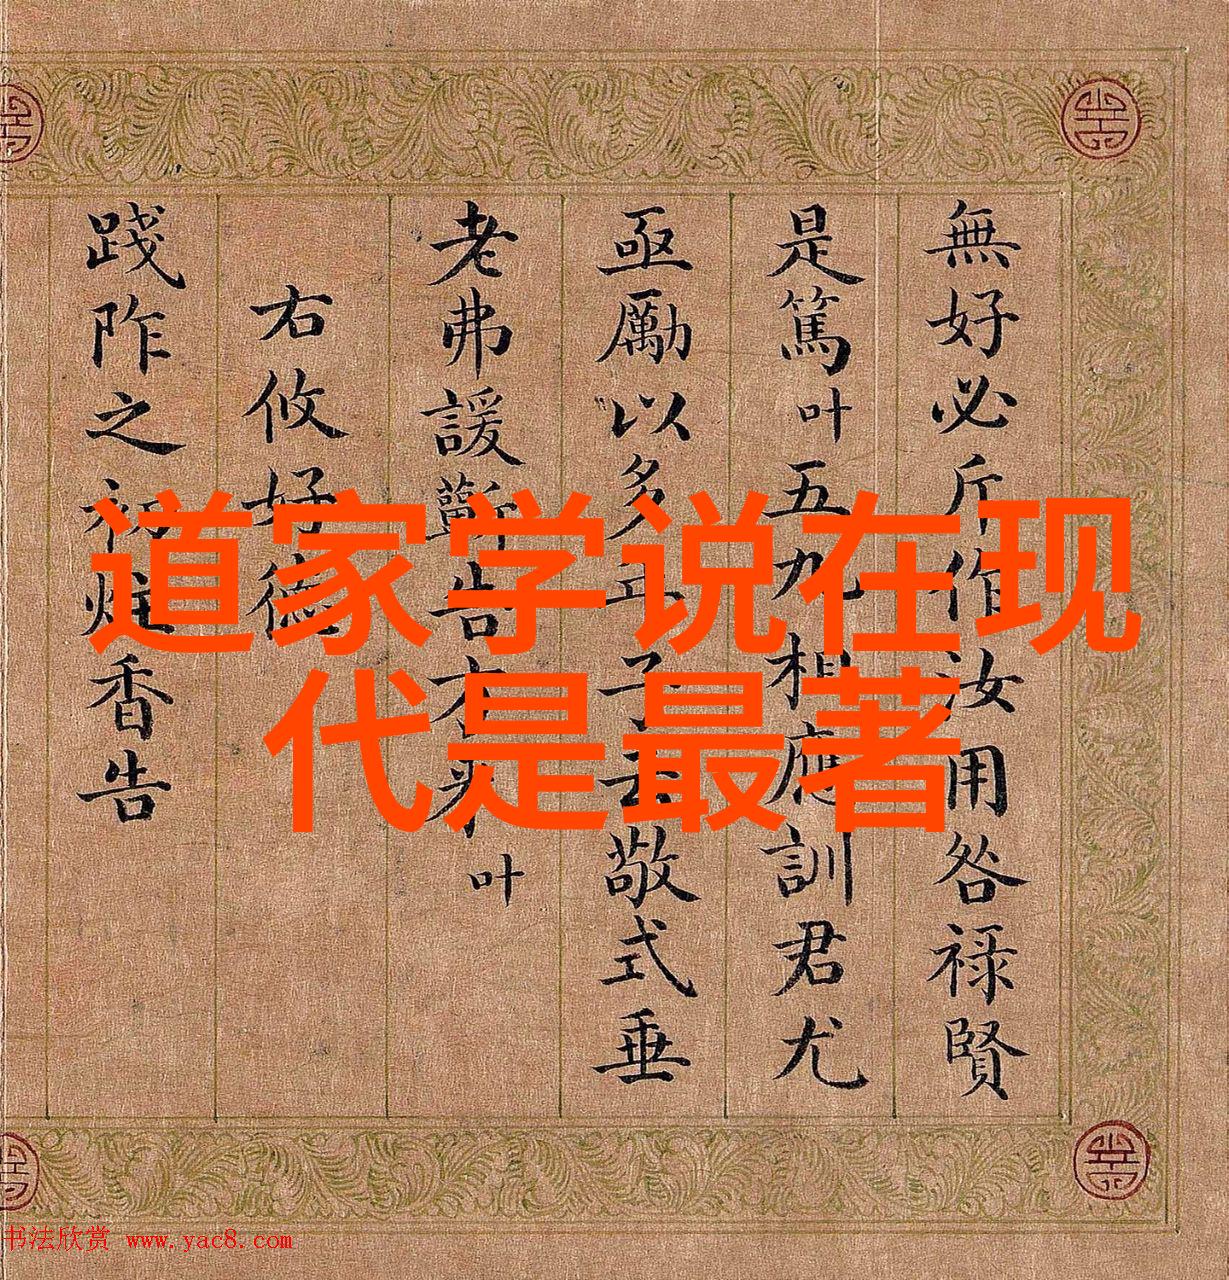 道家学说在现
代是最著
無好必斤作汝用咎祿賢
是篤叶五九相應訓君尤
亟勵以多子敬式垂
老弗諼斷告方来叶
右攸好德
踐阼之初炷香告
书法欣赏 www.yac8.com